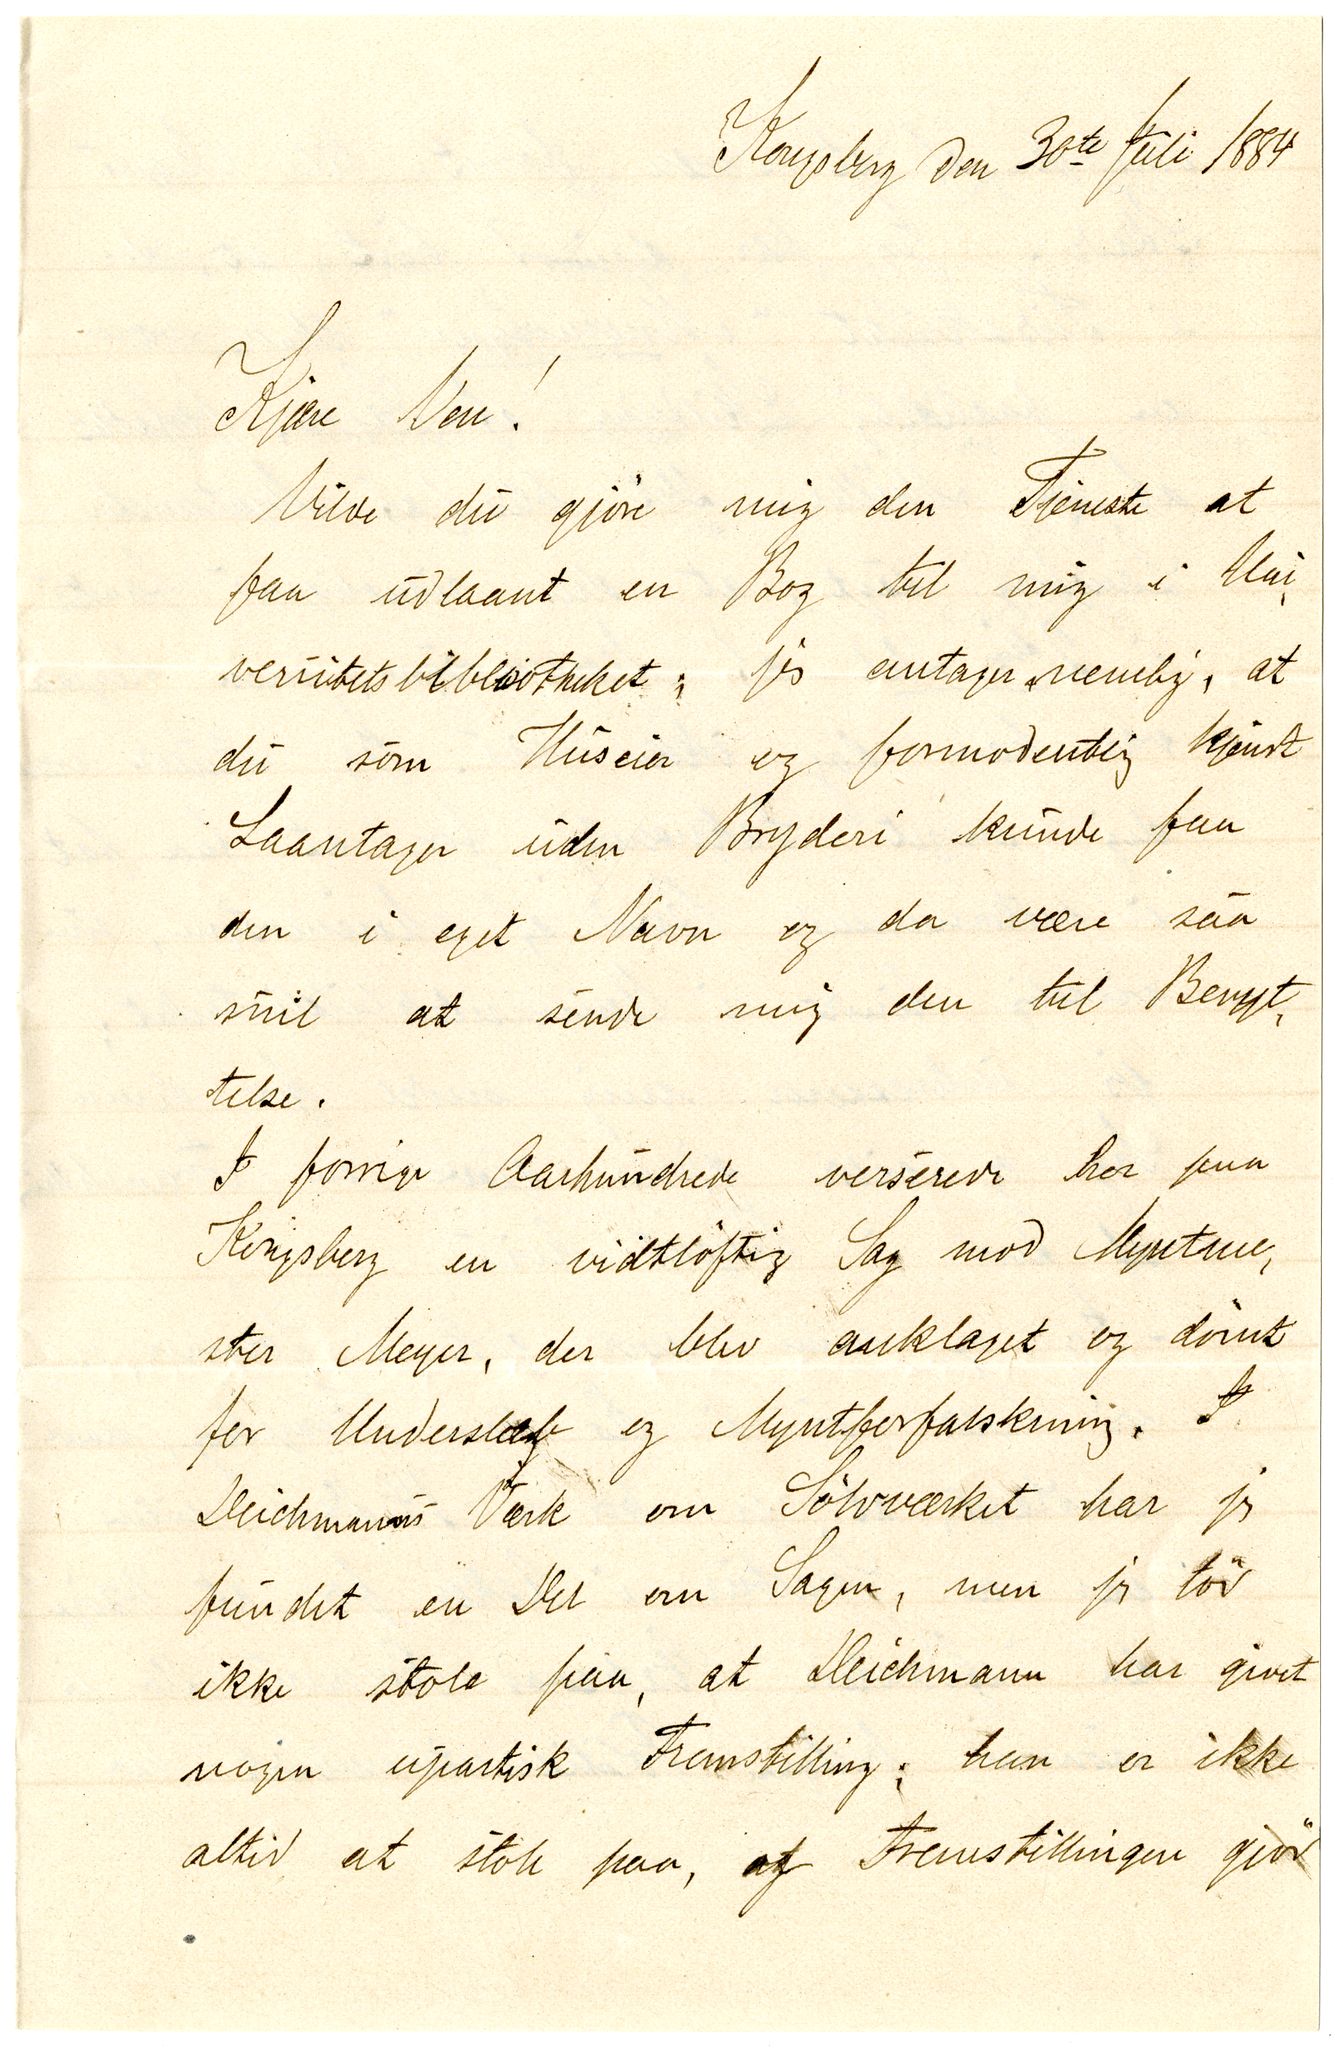 Kongsberg den 30te Juli 1884
Kjære Ven!
Vilde du gjöre mig den Tjeneste at
faa udlaant en Bog til mig i Uni-
versitetsbibliotheket; jeg antager nemlig, at
du som Huseier og formodentlig kjendt
Laantager uden Bryderi kunde faa
den i eget Navn og da være saa
snil at sende mig den til Benyt-
telse.
I forrige Aarhundrede verserede her paa
Kongsberg en vidtlöftig Sag mod Myntme-
ster Meyer, der blev anklaget og dömt
for Underslæb og Myntforfalskning. I
Deichmanns Værk om Sölvværket har jeg
fundet en Del om Sagen, men jeg tör
ikke stole paa, at Deichmann har givet
nogen upartisk Fremstilling; han er ikke
altid at stole paa, og Fremstillingen gjör